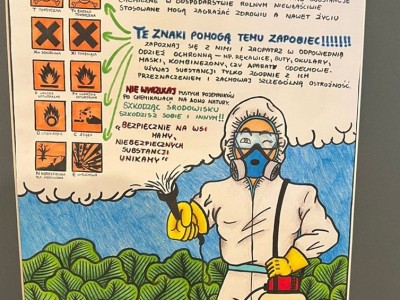 CHEMICZNE W GOSPODARSTWIE ROLNYM NIEWŁAŚCIWIE
STOSOWANE MOGĄ ZAGRAŻAĆ ZDROWIU A NAWET ŻYCIU
TE ZNAKI POMOGĄ TEMU ZAPOBIEC!!!!!!!
ZAPOZNAJ SIĘ Z NIMI I ZAOPATRZ W ODPOWIEDNIĄ
ODZIEŻ OCHRONNĄ - NP. RĘKAWICE, BUTY, OKULARY,
MASKI, KOMBINEZONY, CZY APARATY ODDECHOWE.
UŻYWAJ SUBSTANCJI TYLKO ZGODNIE Z ICH
PRZEZNACZENIEM I ZACHOWAJ SZCZEGÓLNĄ OSTROŻNOŚĆ.
NIE WYRZUCAJ PUSTYCH POJEMNIKÓW
PO CHEMIKALIACH NA ŁONO NATURY.
SZKODZĄC ŚRODOWISKU
SZKODZISZ SOBIE I INNYM!!
"BEZPIECZNIE NA WSI
MAMY,
NIEBEZPIECZNYCH
SUBSTANCJI
UNIKAMY"